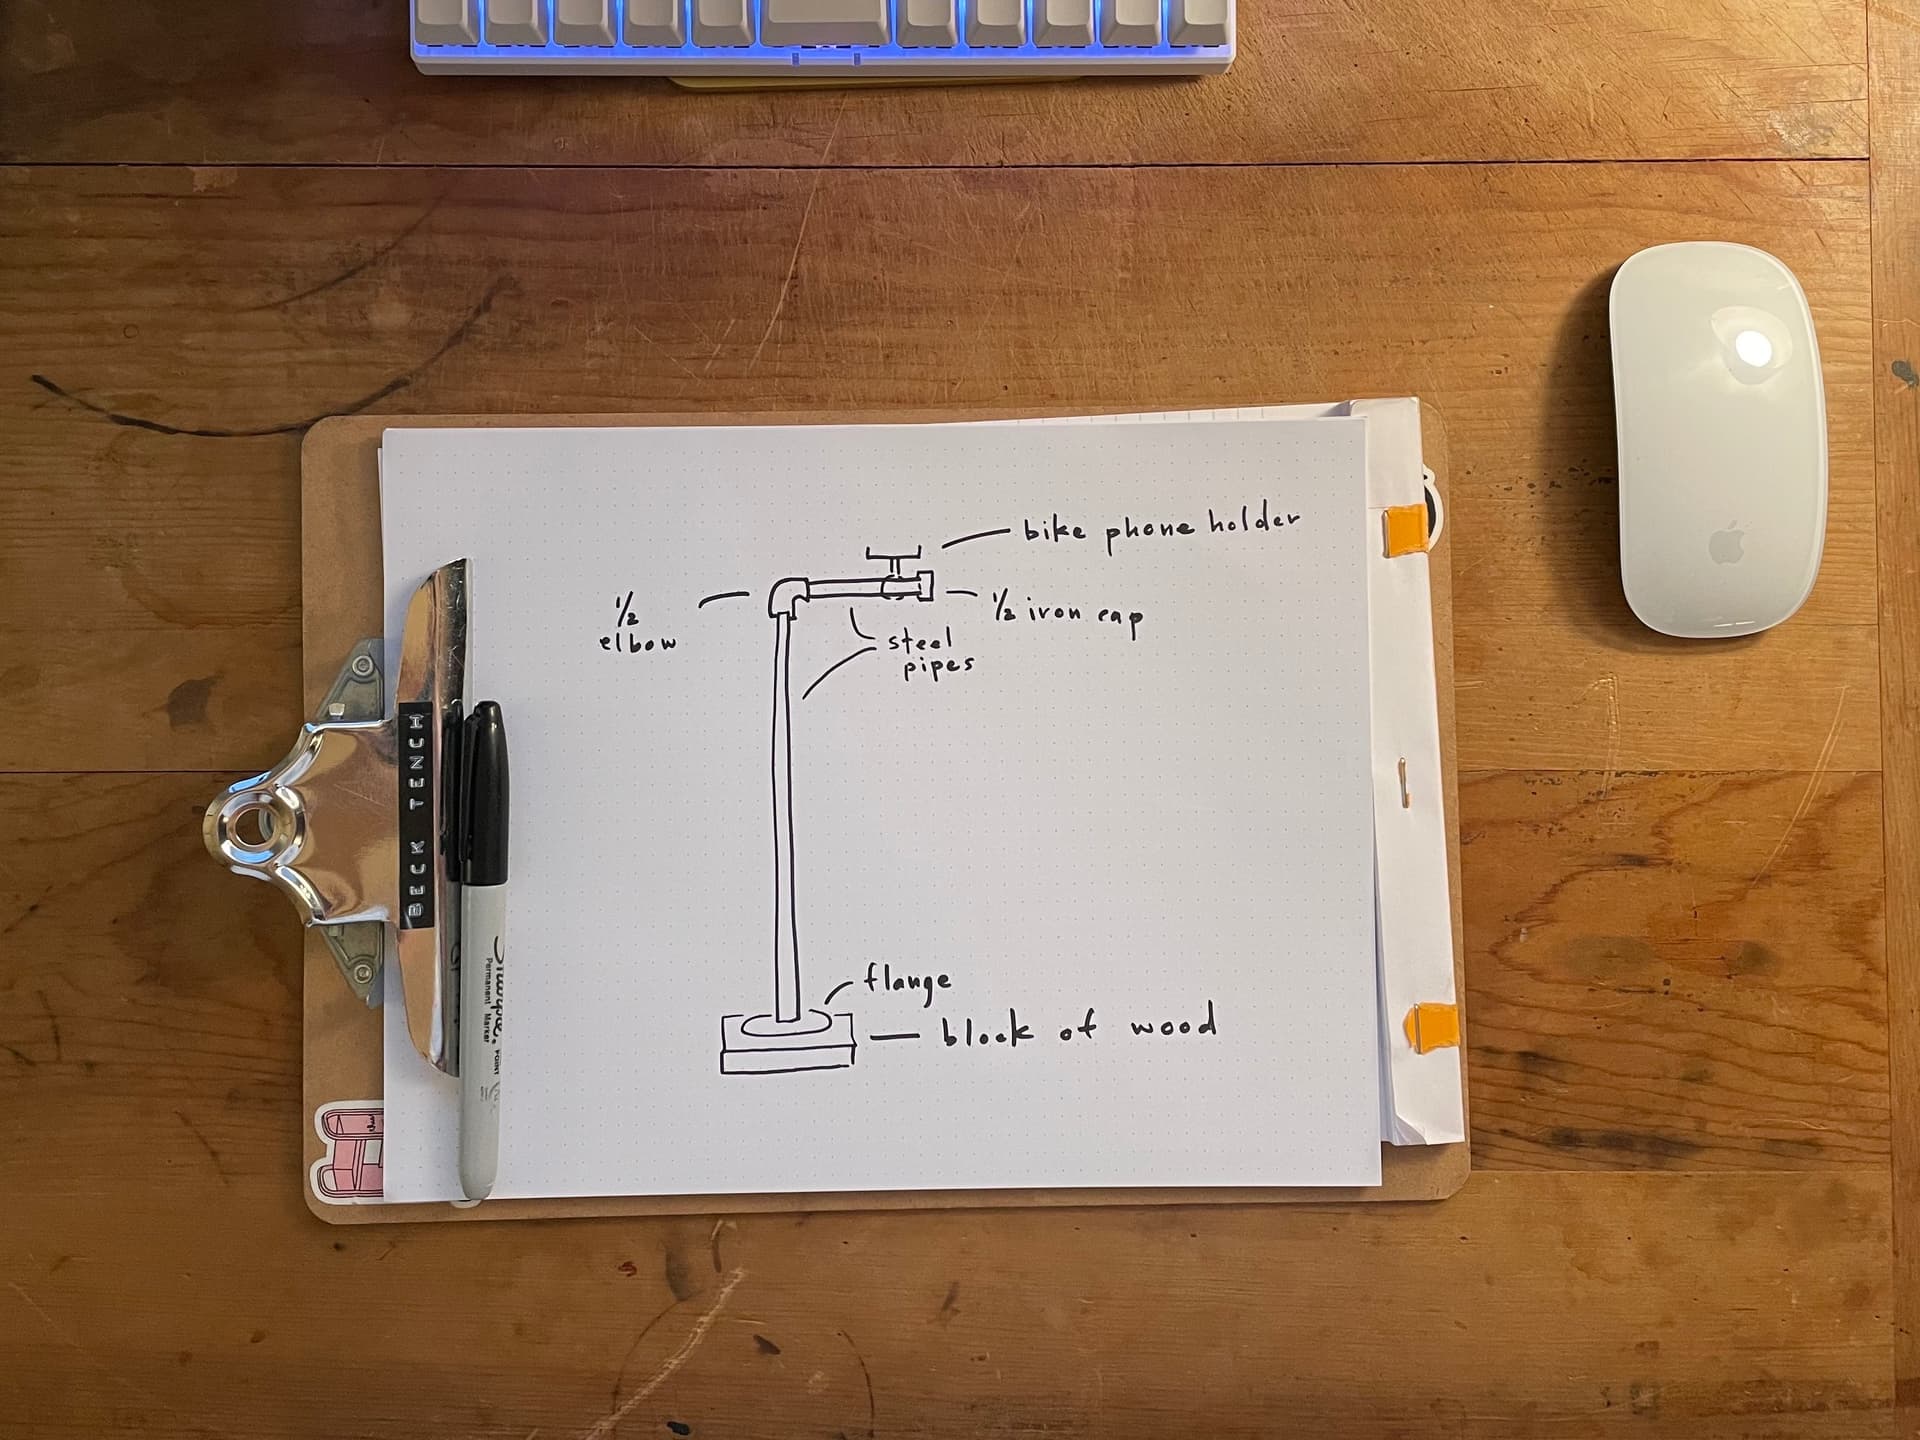 bike phone holder
1/2
elbow
1/2 iron cap
steel
pipes
flange
block of wood
BECK TENCH
Sharpie.
Permanent Marker